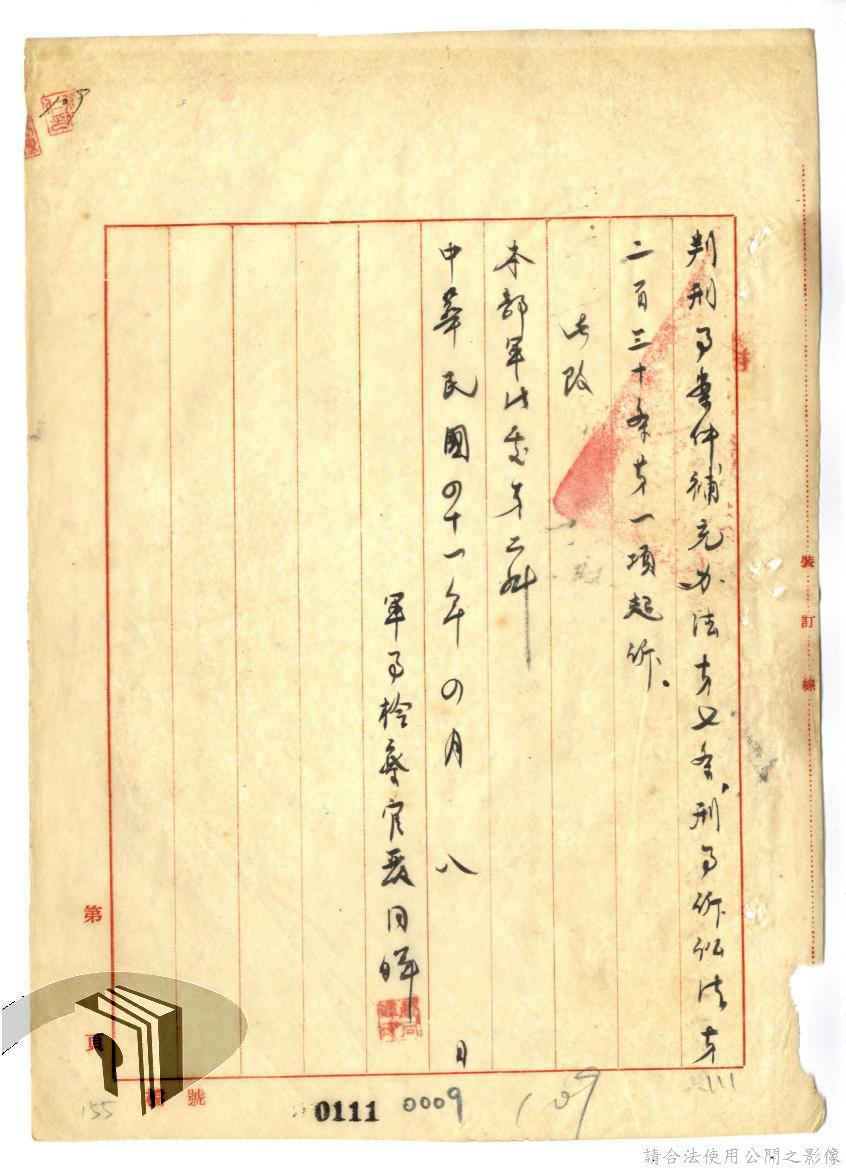 判刑事案件補充办法第七条、刑事訴訟法第
二百三十条第一項起訴。
此致
本部軍法處第二科
中華民國四十一年四月八日
軍事检察官 同暉
裝訂線
第頁
號
155
0111
0009
109
111
109
請合法使用公開之影像